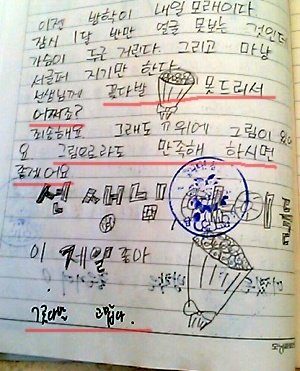 이젠 방학이 내일 모래이다
잠시 1달 반만 얼굴 못보는 것인데
가슴이 두근 거린다. 그리고 마냥
서글퍼 지기만 한다.
선생님께 꽃다발 못드려서
어쩌죠?
죄송해요 그래도 위에 그림이
요 그림으로라도 만족해 하시면
좋겠어요
선생님
이 제일 좋아
고맙다.